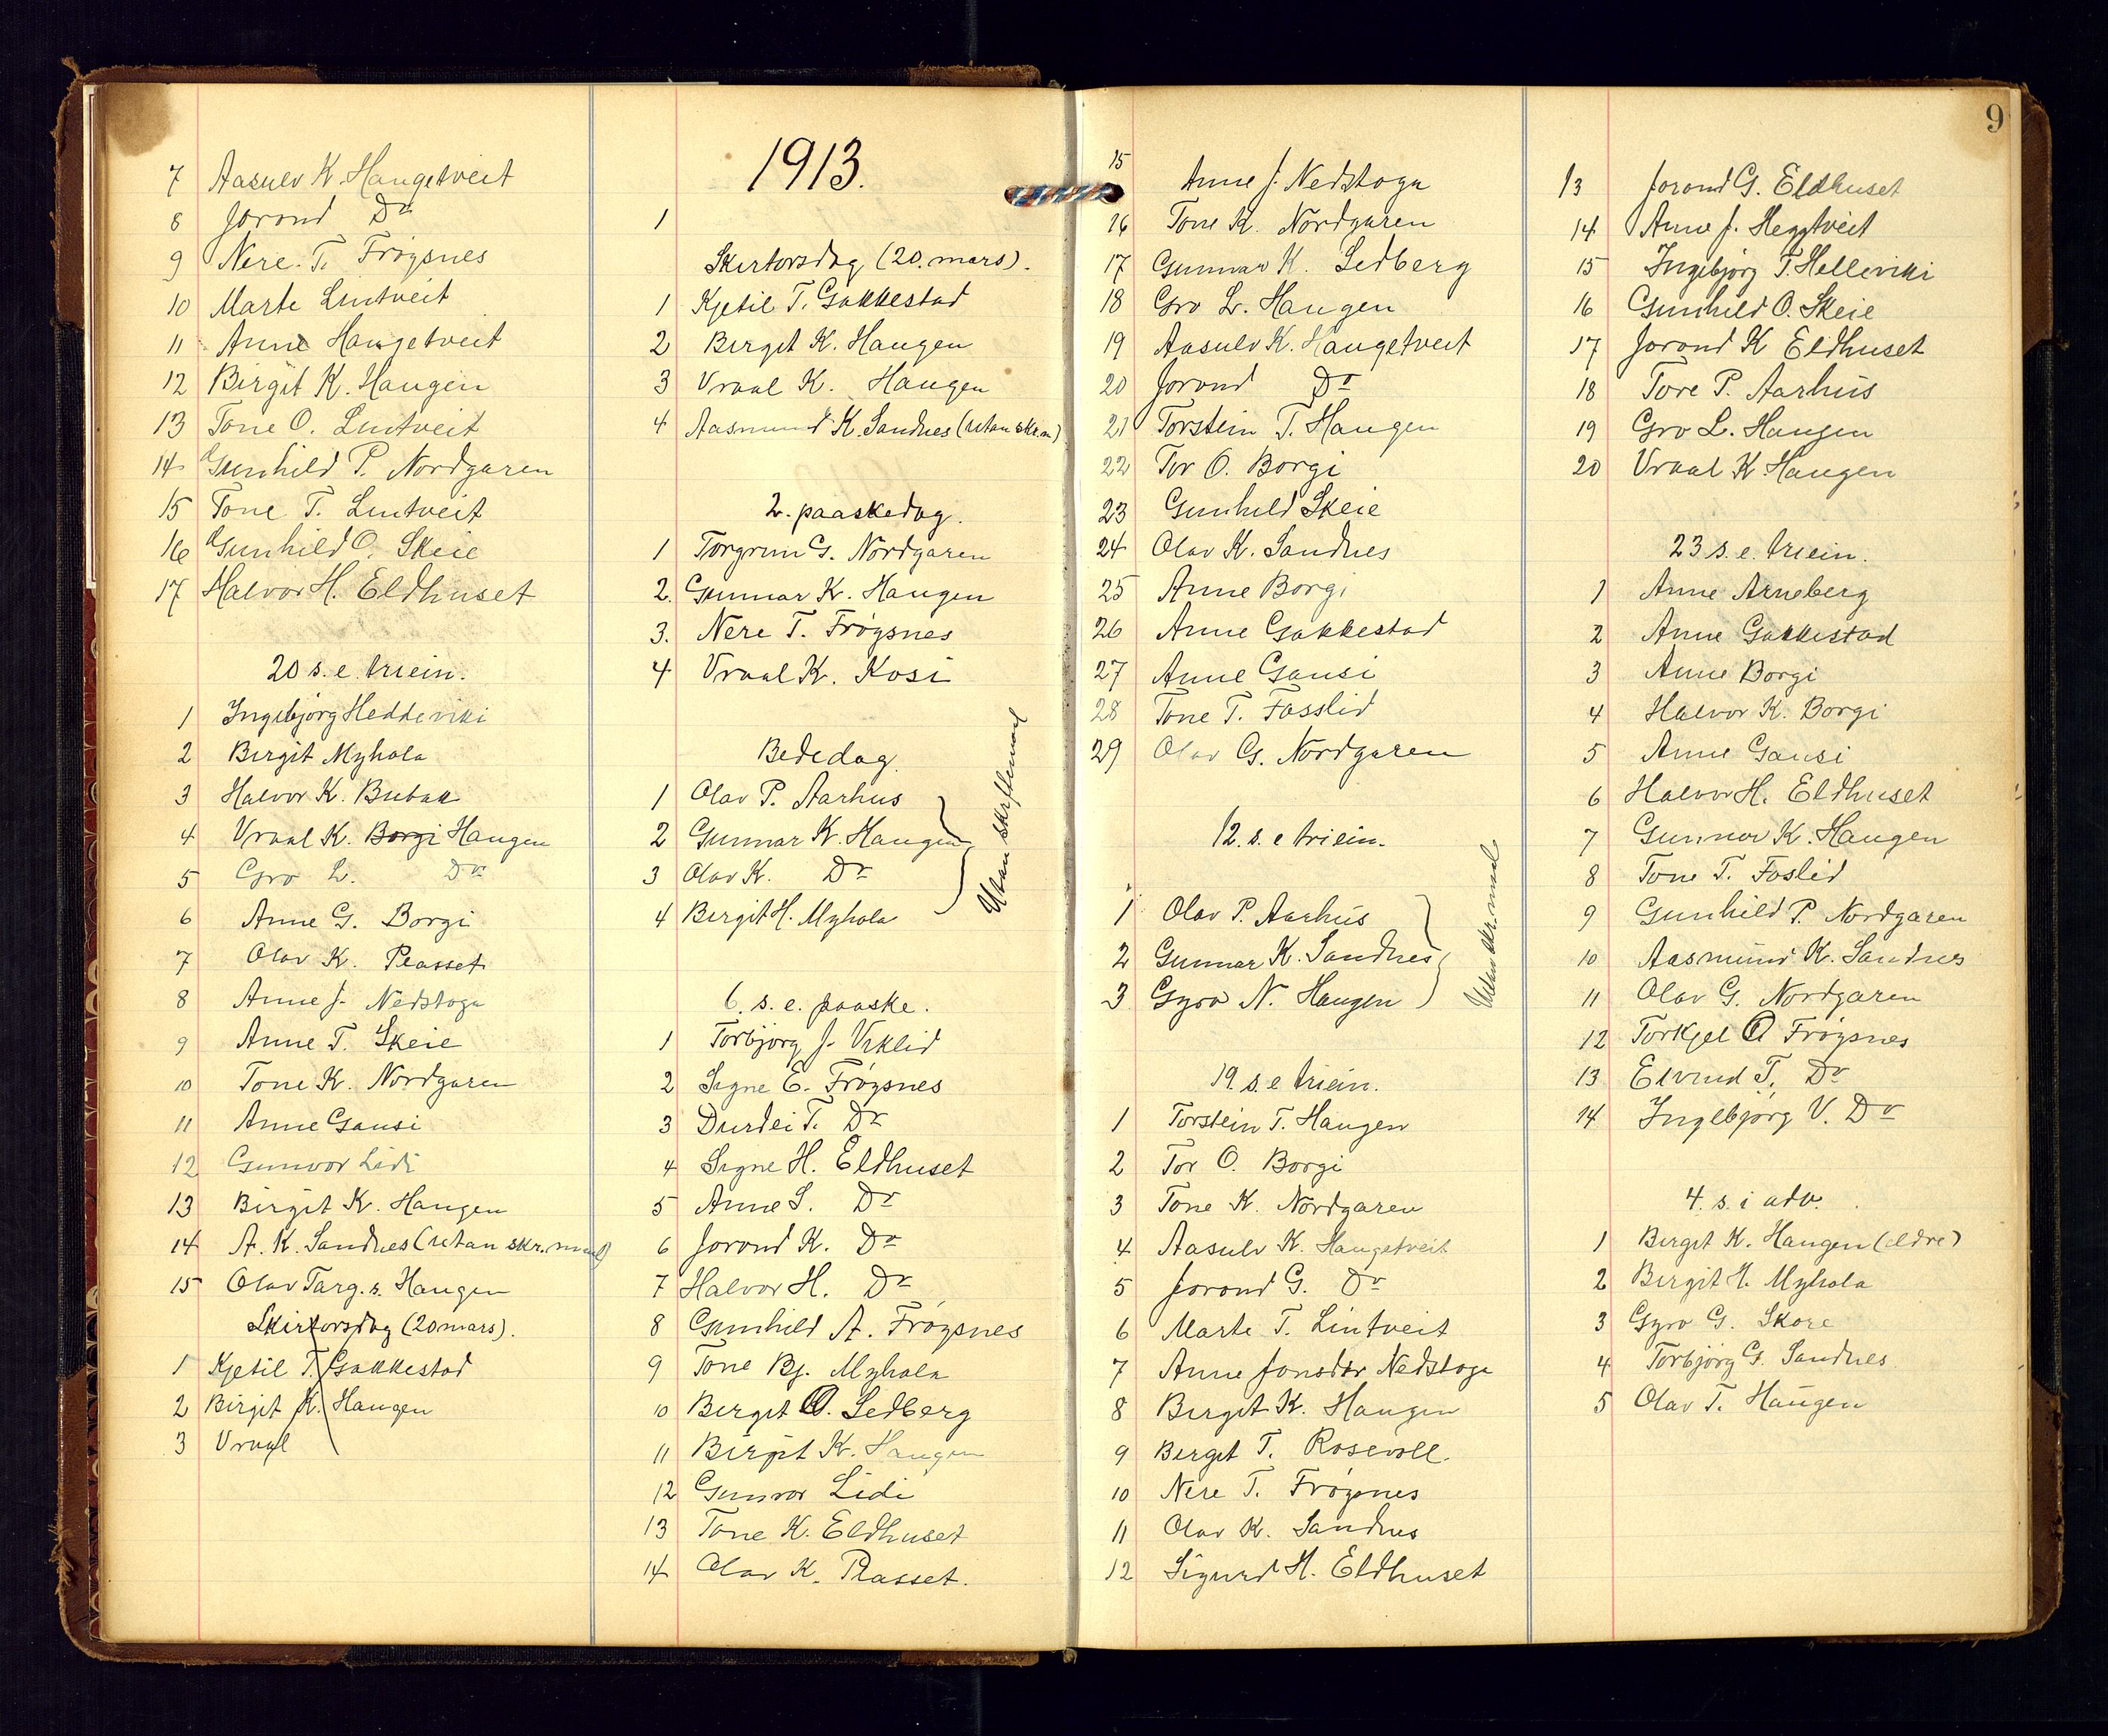 7 Aasulv K. Haugetveit
8 Jorond Do
9 Nere T. Frøysnes
10 Marte Lintveit
11 Anne Haugetveit
12 Birgit K. Haugen
13 Tone O. Lintveit
14 Gunhild P. Nordgaren
15 Tone T. Lintveit
16 Gunhild O. Skeie
17 Halvor H. Eldhuset
20 s. e. triein.
1 Ingebjørg Heddeviki
2 Birgit Myhola
3 Halvor K. Bubakk
4 Vraal K. Borgi Haugen
5 Gro L. Do
6 Anne G. Borgi
7 Olav K. Plasset
8 Anne J. Nedstoga
9 Anne T. Skeie
10 Tone K. Nordgaren
11 Anne Gausi
12 Gunvor Lidi
13 Birgit K. Haugen
14 A. K. Sandnes (utan skr.maal)
15 Olav Targ. s. Haugen
Skirtorsdag (20 mars).
1 Kjetil T. Gakkestad
2 Birgit K. Haugen
3 Vraal
1913.
1
Skirtorsdag (20. mars).
1 Kjetil T. Gakkestad
2 Birgit K. Haugen
3 Vraal K. Haugen
4 Aasmund K. Sandnes (utan skr.m)
2. paaskedag.
1 Torgrim G. Nordgaren
2. Gunnar K. Haugen
3. Nere T. Frøysnes
4 Vraal K. Kosi
Bededag.
1 Olav P. Aarhus
2 Gunnar K. Haugen
3 Olav K. Do
4 Birgit H. Myhola
Utan skriftemaal
6. s. e. paaske.
1 Torbjørg J. Viklid
2 Signe E. Frøysnes
3 Durdei T. Do
4 Signe H. Eldhuset
5 Anne S. Do
6 Jorond K. Do
7 Halvor H. Do
8 Gunhild A. Frøysnes
9 Tone Bj. Myhola
10 Birgit O. Sedberg
11 Birgit K. Haugen
12 Gunvor Lidi
13 Tone K. Eldhuset
14 Olav K. Plasset.
9
15 Anne J. Nedstoga
16 Tone K. Nordgaren
17 Gunnar K. Sedberg
18 Gro L. Haugen
19 Aasulv K. Haugetveit
20 Jorond Do
21 Torstein T. Haugen
22 Tor O. Borgi
23 Gunhild Skeie
24 Olav K. Sandnes
25 Anne Borgi
26 Anne Gakkestad
27 Anne Gausi
28 Tone T. Fosslid
29 Olav G. Nordgaren
12. s. e triein.
1 Olav P. Aarhus
2 Gunnar K. Sandnes
3 Gyro N. Haugen
Utan skr.maal
19. s. e triein.
1 Torstein T. Haugen
2 Tor O. Borgi
3 Tone K. Nordgaren
4 Aasulv K. Haugetveit
5 Jorond G. Do
6 Marte T. Lintveit
7 Anne Jonsdtr Nedstoga
8 Birgit K. Haugen
9 Birgit T. Rosevoll.
10 Nere T. Frøysnes
11 Olav K. Sandnes
12 Sigurd H. Eldhuset
13 Jorond G. Eldhuset
14 Anne J. Heggtveit
15 Ingebjørg T. Helleviki
16 Gunhild O. Skeie
17 Jorond K Eldhuset
18 Tore P. Aarhus
19 Gro L. Haugen
20 Vraal K. Haugen
23 s. e. triein.
1 Anne Arneberg
2 Anne Gakkestad
3 Anne Borgi
4 Halvor K. Borgi
5 Anne Gausi
6 Halvor H. Eldhuset
7 Gunnar K. Haugen
8 Tone T. Foslid
9 Gunhild P. Nordgaren
10 Aasmund K. Sandnes
11 Olav G. Nordgaren
12 Torkjel O Frøysnes
13 Eivind T. Do
14 Ingebjørg V. Do
4. s. i adv.
1 Birgit K. Haugen (eldre)
2 Birgit H. Myhola
3 Gyro G. Skore
4 Torbjørg G. Sandnes
5 Olav T. Haugen